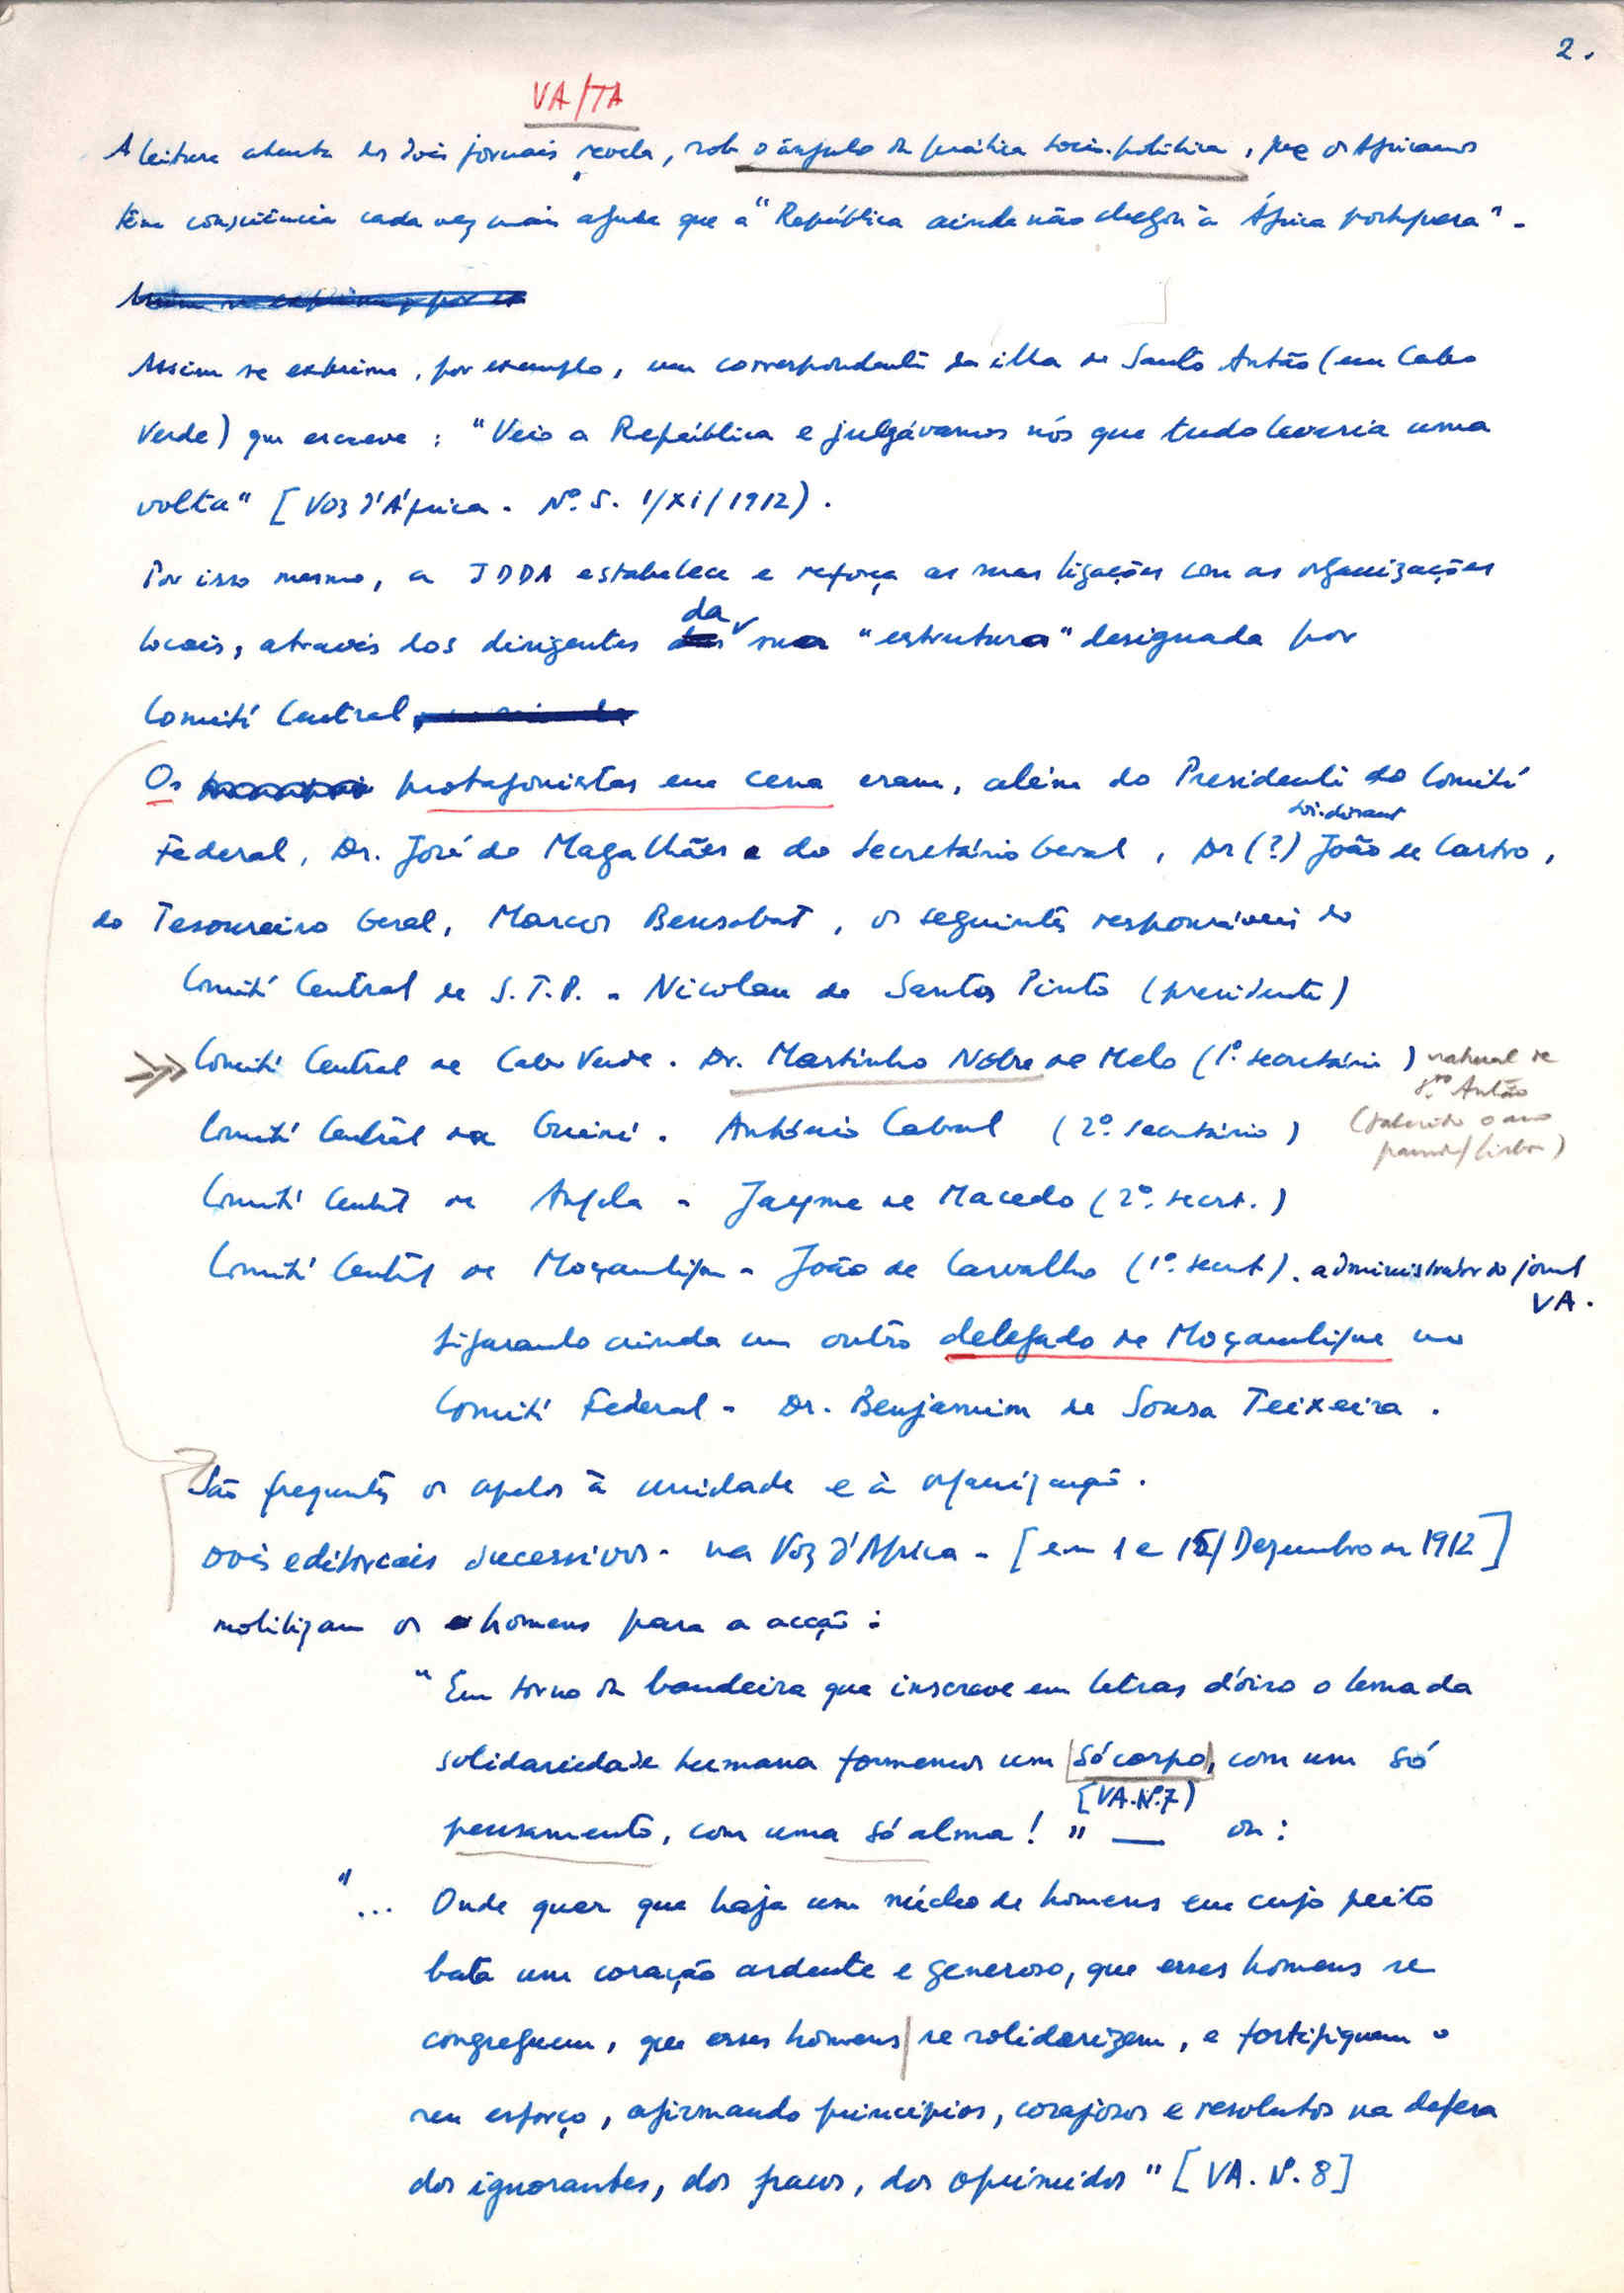 2.
VA/TA
A leitura atenta dos dois jornais revela, sob o ângulo da prática socio-política, que os Africanos
têm consciência cada vez mais aguda que a "República ainda não chegou à África portuguesa".
Assim se exprime, por ex
Assim se exprime, por exemplo, um correspondente da ilha de Santo Antão (em Cabo
Verde) que escreve : "Veio a República e julgávamos nós que tudo levaria uma
volta" [Voz d'África - Nº 5. 1/XI/1912).
Por isso mesmo, a JDDA estabelece e reforça as suas ligações com as organizações
da
locais, através dos dirigentes das sua "estrutura" designada por
Comité Central
Os protagonistas em cena eram, além do Presidente do Comité
soi-disant
Federal, Dr. José de Magalhães e do Secretário Geral, Dr (?) João de Castro,
do Tesoureiro Geral, Marcos Bensabat, os seguintes responsáveis do
Comité Central de S.T.P. - Nicolau de Santos Pinto (presidente)
Comité Central de Cabo Verde. Dr. Martinho Nobre de Melo (1º secretário) natural de
Stº Antão
Comité Central da Guiné. António Cabral (2º secretário) (falecido o ano
passado/Lisboa)
Comité Central de Angola - Jayme de Macedo (2º. secret.)
Comité Central de Moçambique - João de Carvalho (1º. secret.). administrador do jornal
VA.
figurando ainda um outro delegado de Moçambique no
Comité Federal - Dr. Benjamim de Sousa Teixeira.
São frequentes os apelos à unidade e à organização.
Dois editoriais sucessivos - na Voz d'Africa - [em 1 e 15/Dezembro de 1912]
mobilizam os homens para a acção :
"Em torno da bandeira que inscreve em letras d'óiro o lema da
solidariedade humana formemos um só corpo, com um só
[VA.Nº.7)
pensamento, com uma só alma!" — ou :
"... Onde quer que haja um núcleo de homens em cujo peito
bata um coração ardente e generoso, que esses homens se
congreguem, que esses homens se solidarizem, e fortifiquem o
seu esforço, afirmando princípios, corajosos e resolutos na defesa
dos ignorantes, dos fracos, dos oprimidos" [VA. Nº. 8]